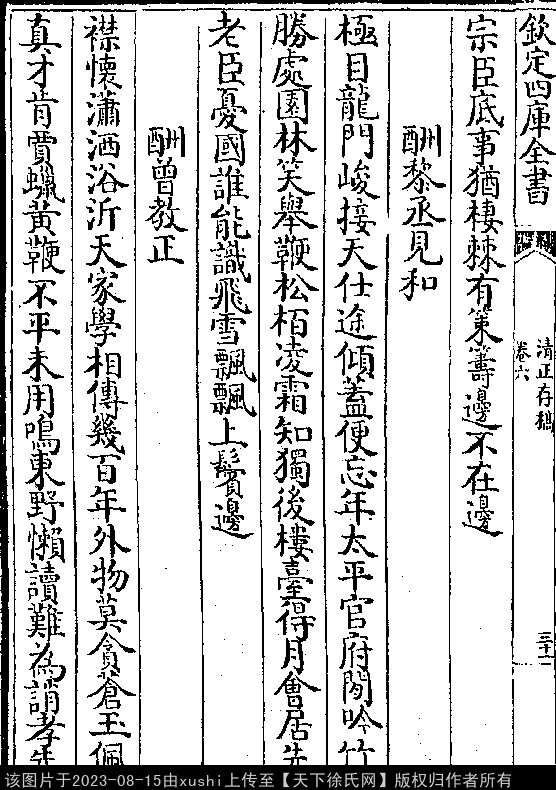 欽定四庫全書
清正存稿
卷六
三十二
宗臣底事猶棲棘有策籌邊不在邊
酬黎丞見和
極目龍門峻接天仕途傾蓋便忘年太平官府閒吟竹
勝處園林笑舉鞭松栢凌霜知獨後樓臺得月會居先
老臣憂國誰能識飛雪飄飄上鬢邊
酬曾教正
襟懷瀟洒浴沂天家學相傳幾百年外物莫貪蒼玉佩
真才肯賣蠟黃鞭不平未用鳴東野懶讀難為誚孝先
该图片于2023-08-15由xushi上传至【天下徐氏网】版权归作者所有